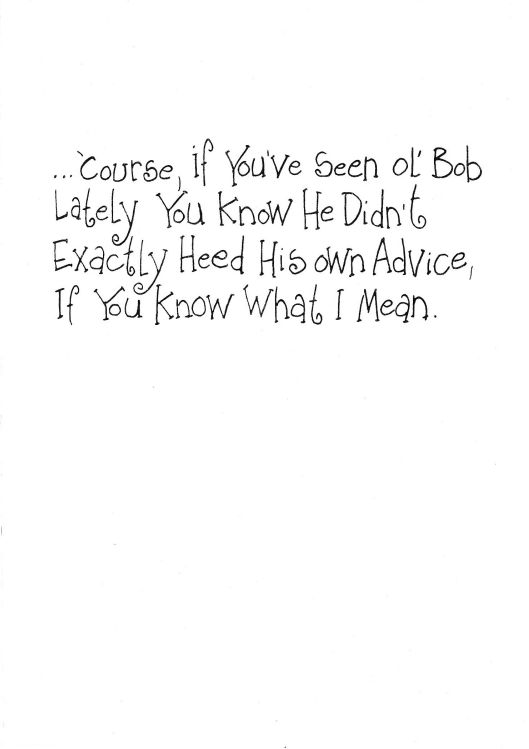 ...'Course, if You've Seen ol' Bob
Lately You Know He Didn't
Exactly Heed His own Advice,
If You Know What I Mean.